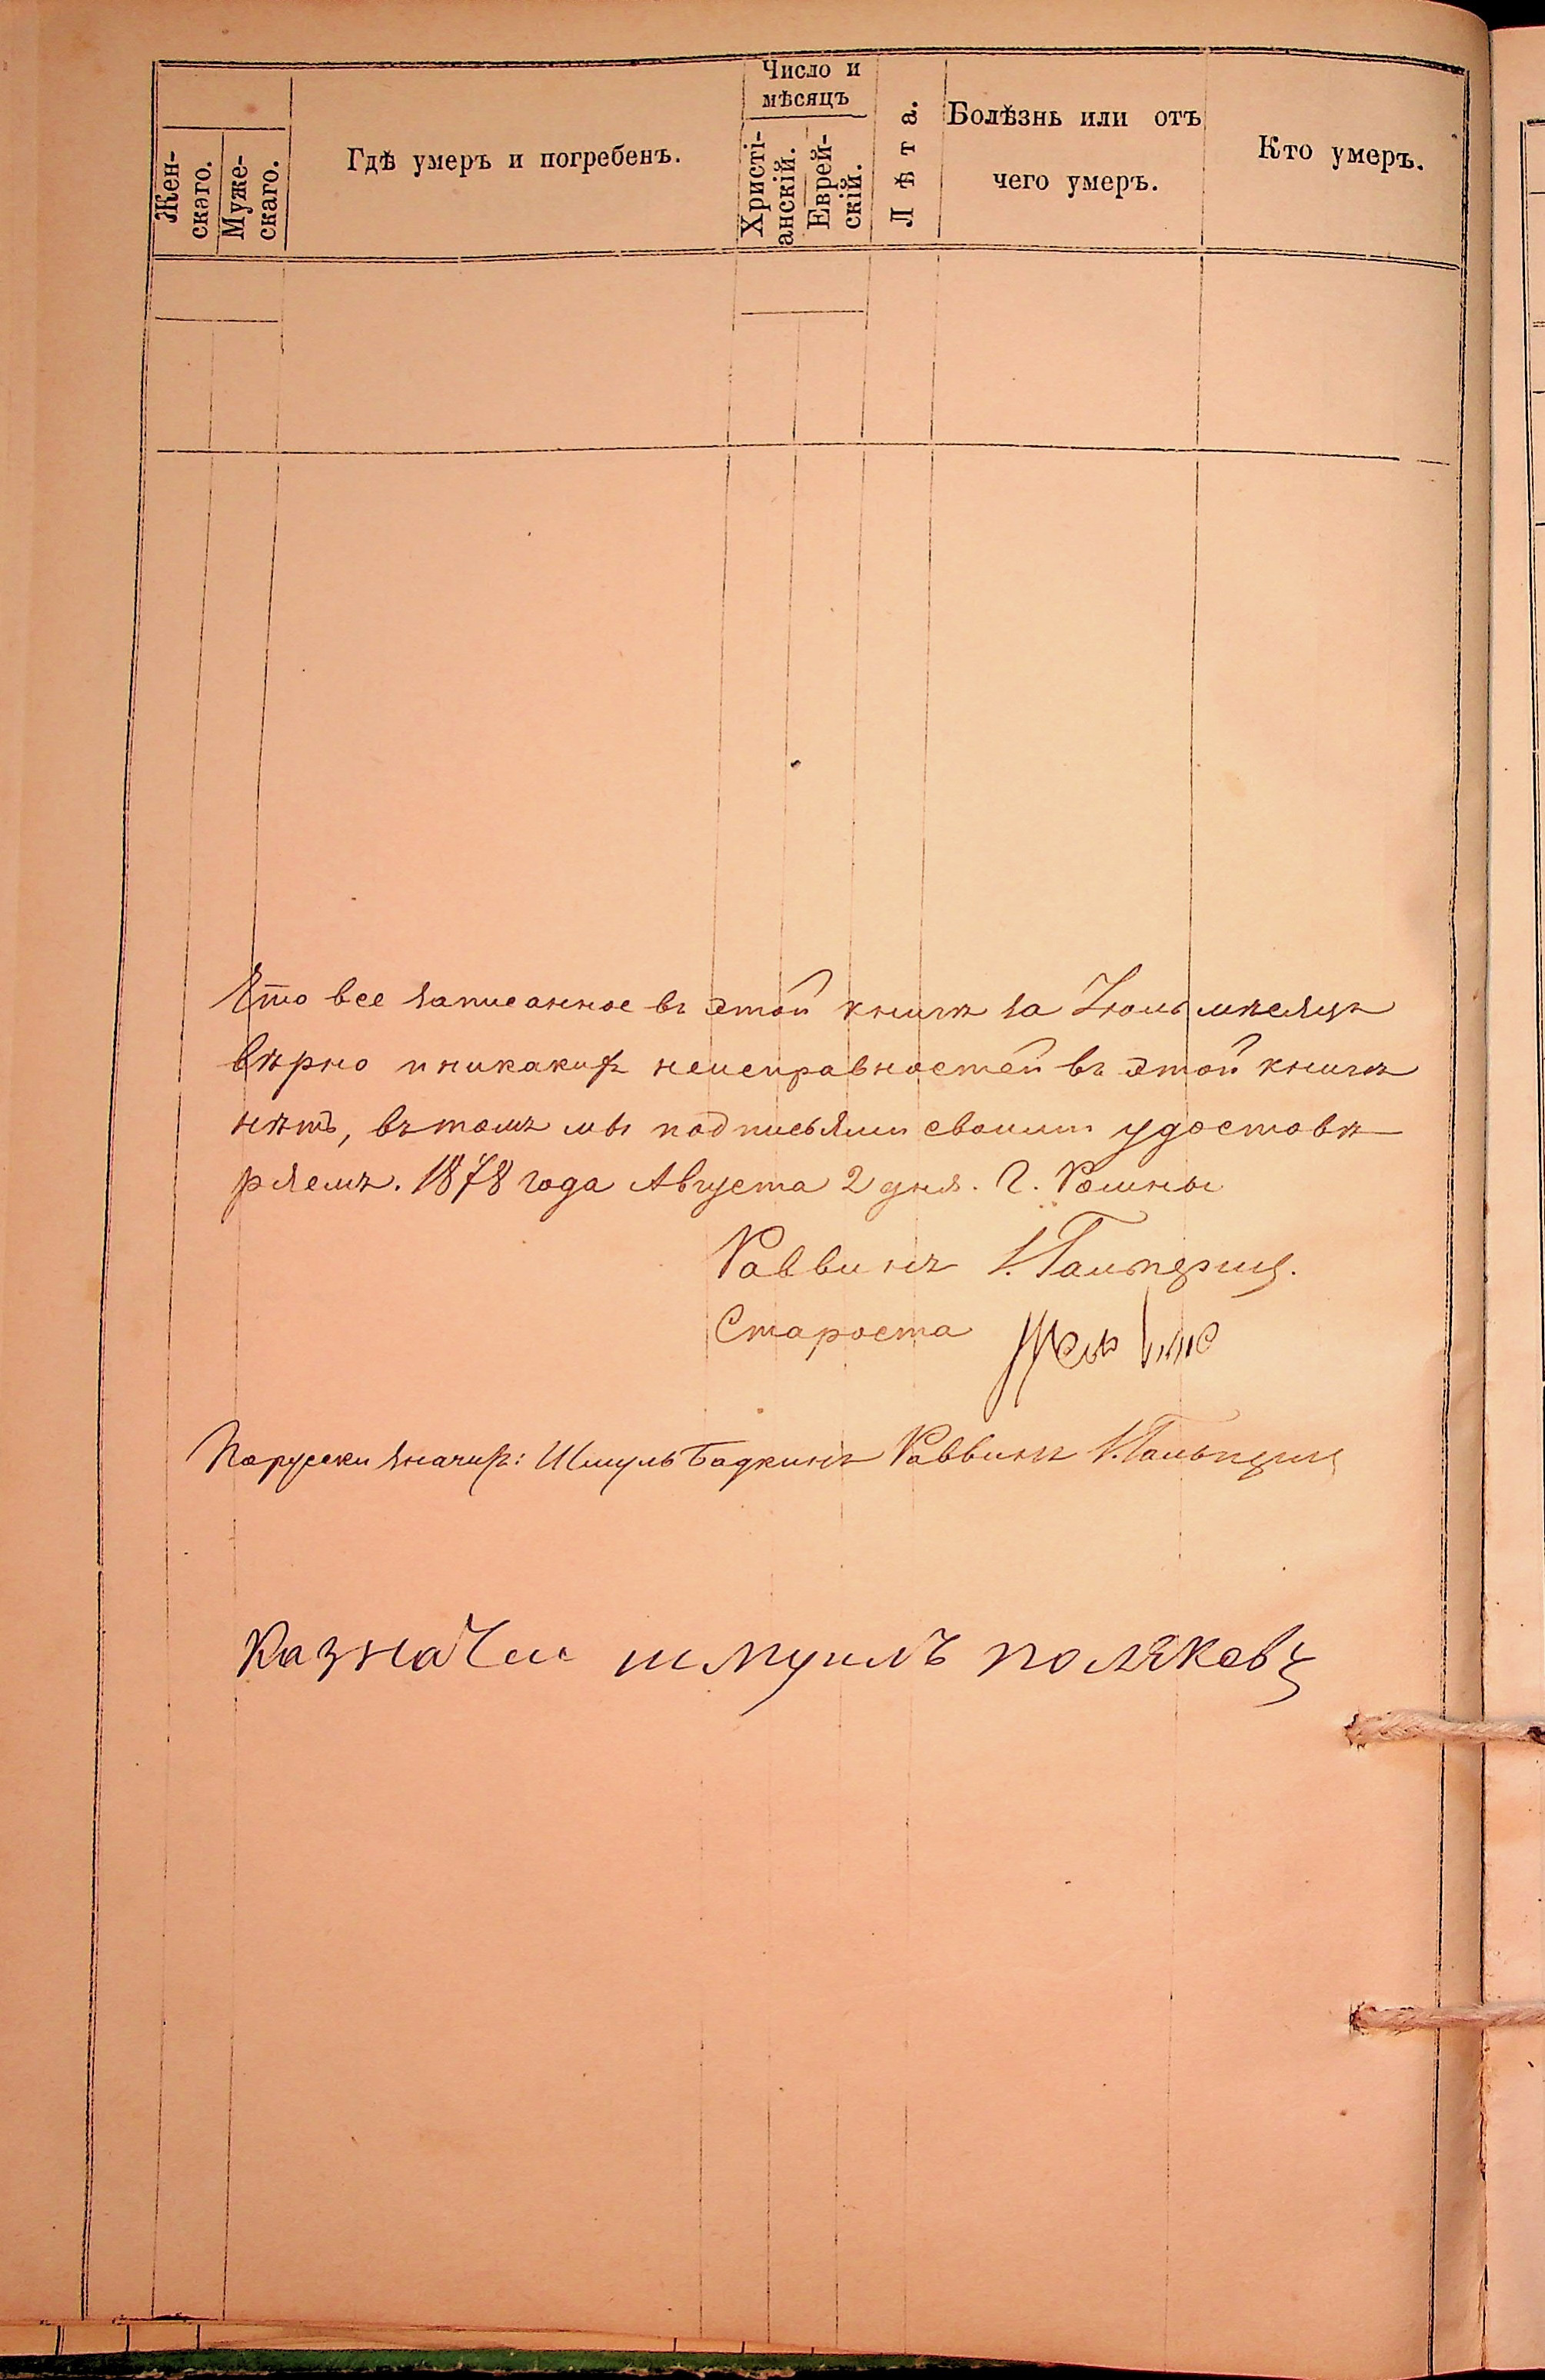 Жен-
скаго.
Муже-
скаго.
Гдѣ умеръ и погребенъ.
Число и
мѣсяцъ
Христі-
анскій.
Еврей-
скій.
Лѣта.
Болѣзнь или отъ
чего умеръ.
Кто умеръ.
Что все записанное въ этой книгѣ за Іюль мѣсяцъ
вѣрно и никакихъ неисправностей въ этой книгѣ
нѣтъ, въ томъ мы подписьями своими удостовѣ
ряемъ. 1878 года Августа 2 дня. Г. Ромны
Раввинъ
Староста
По русски значитъ: Шмуль Бадкинъ Раввинъ
Казначеи шмуилъ поляковъ